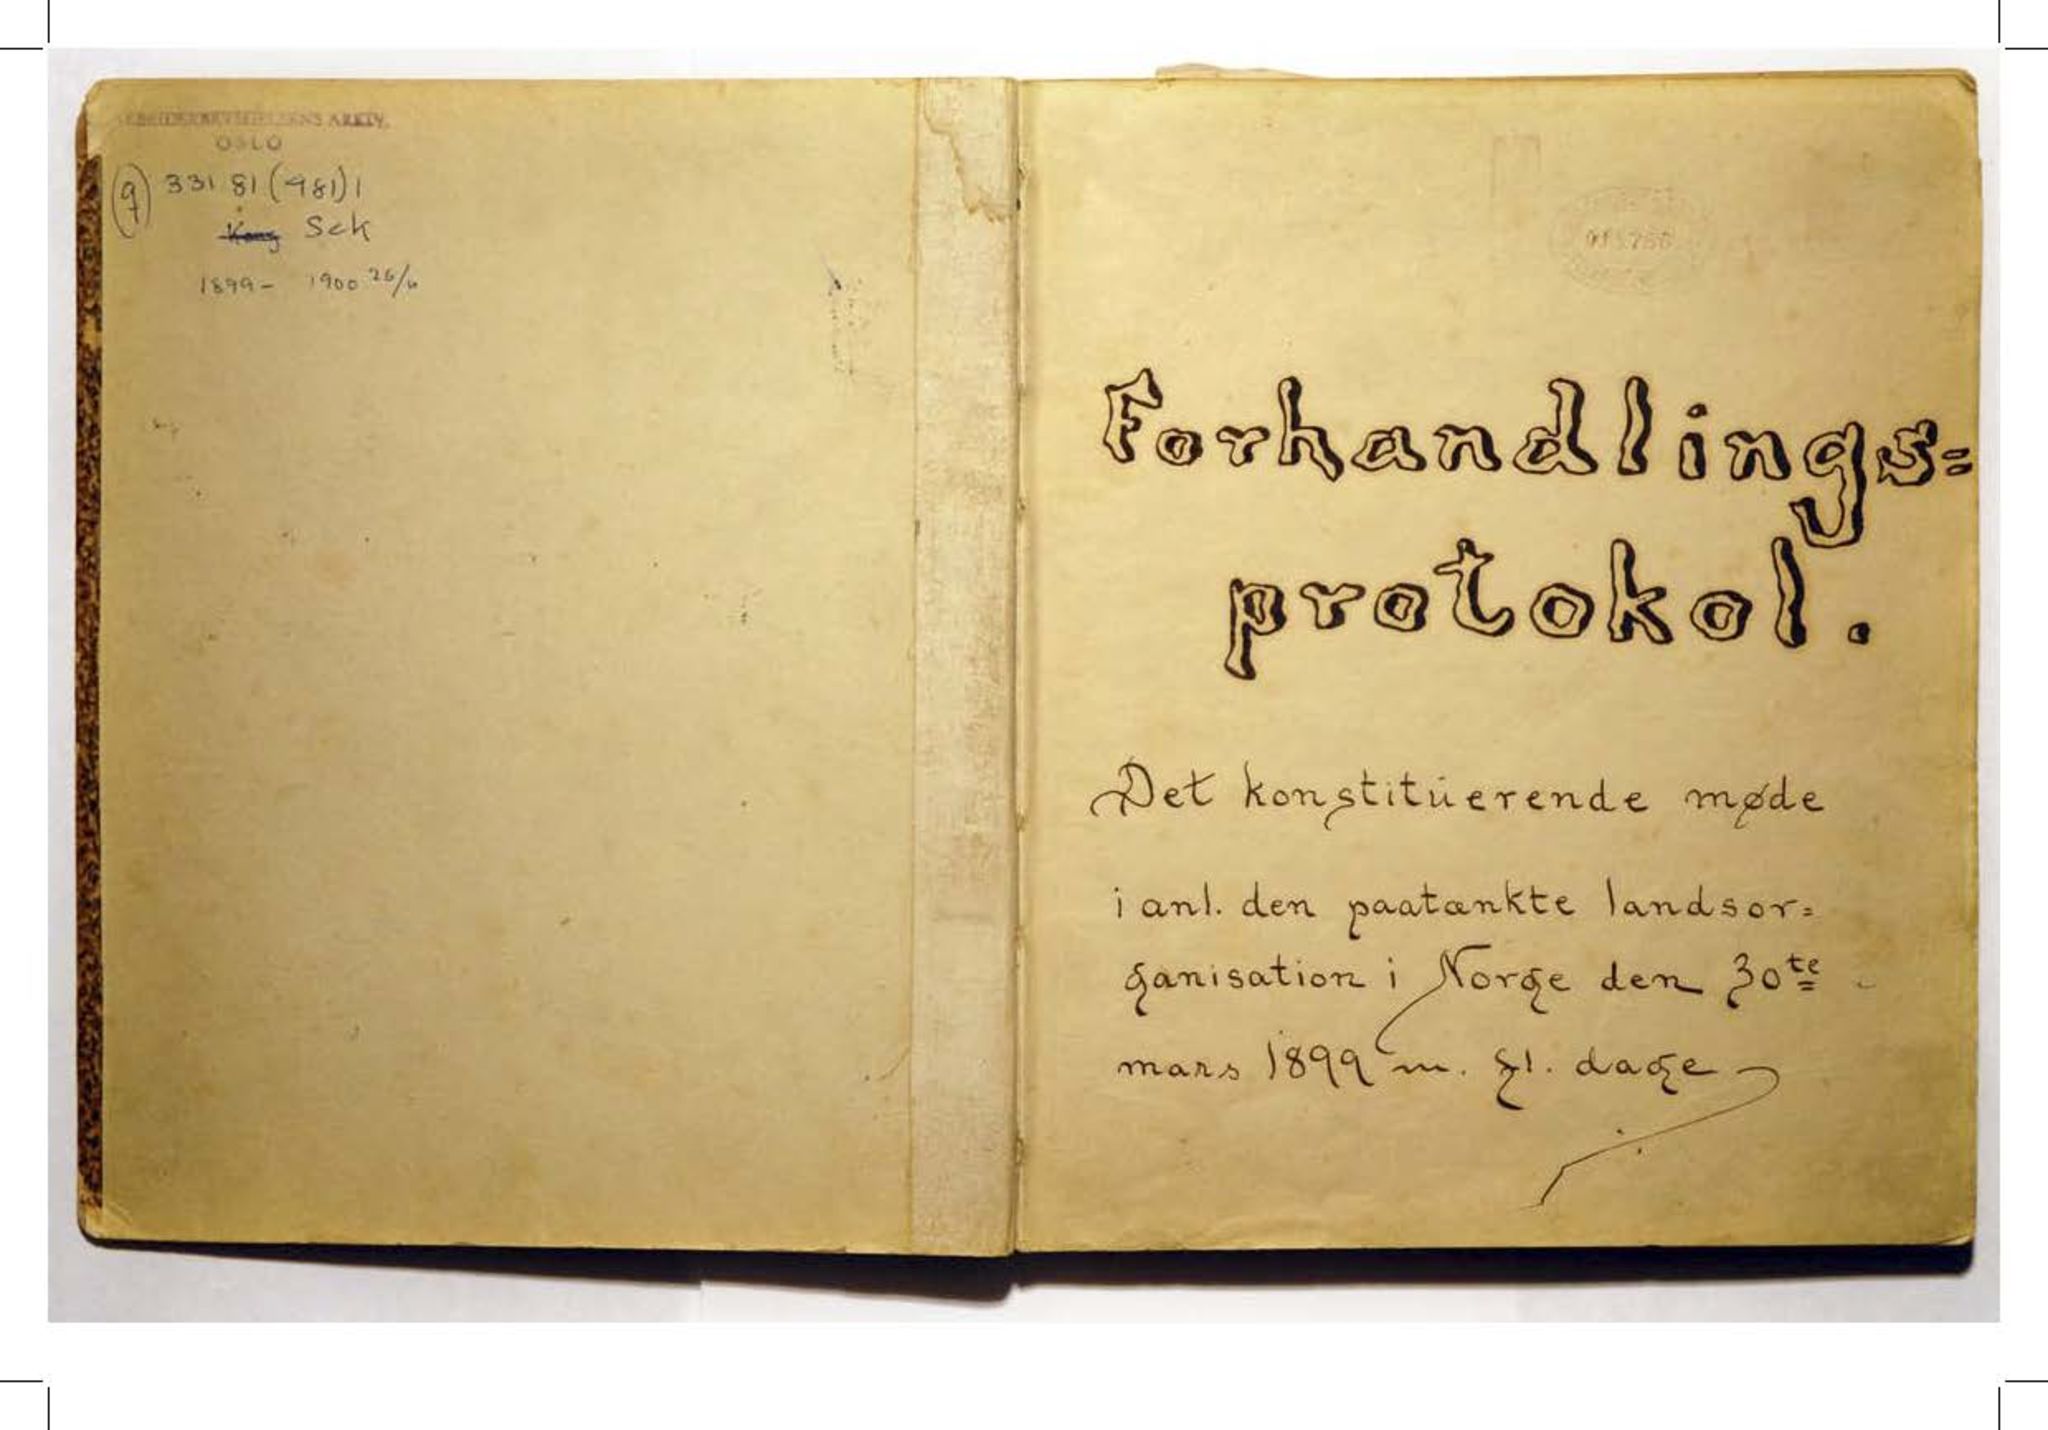 ARBEIDERBEVEGELSENS ARKIV,
OSLO
(9) 331 81 (481) 1
Sek
1899 - 1900 26/6
Forhandlings=
protokol.
Det konstitüerende møde
i anl. den paatænkte landsor=
ganisation i Norge den 30te
mars 1899 m. fl. dage